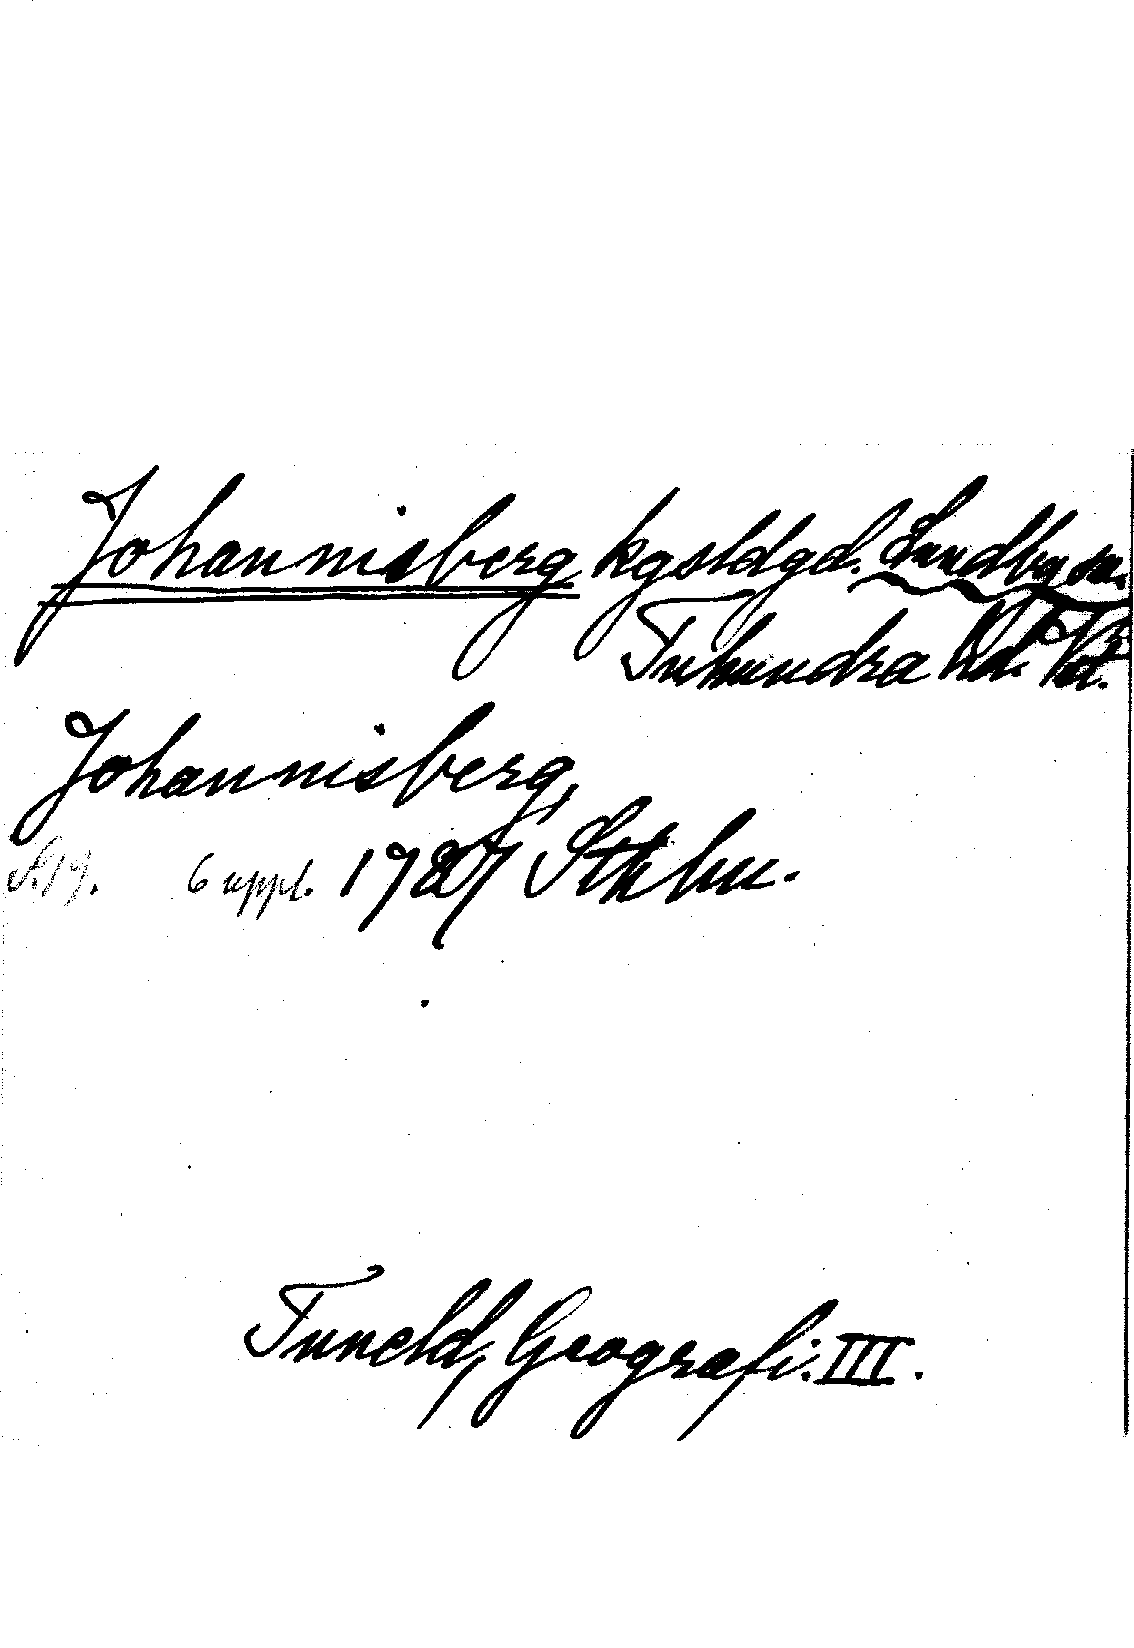 Johannisberg kgsldgd. Sundby sn.
Tuhundra hd. Vstm.
Johannisberg,
S. 19. 6 uppl. 1787 Sthlm.
Tuneld, Geografi. III.